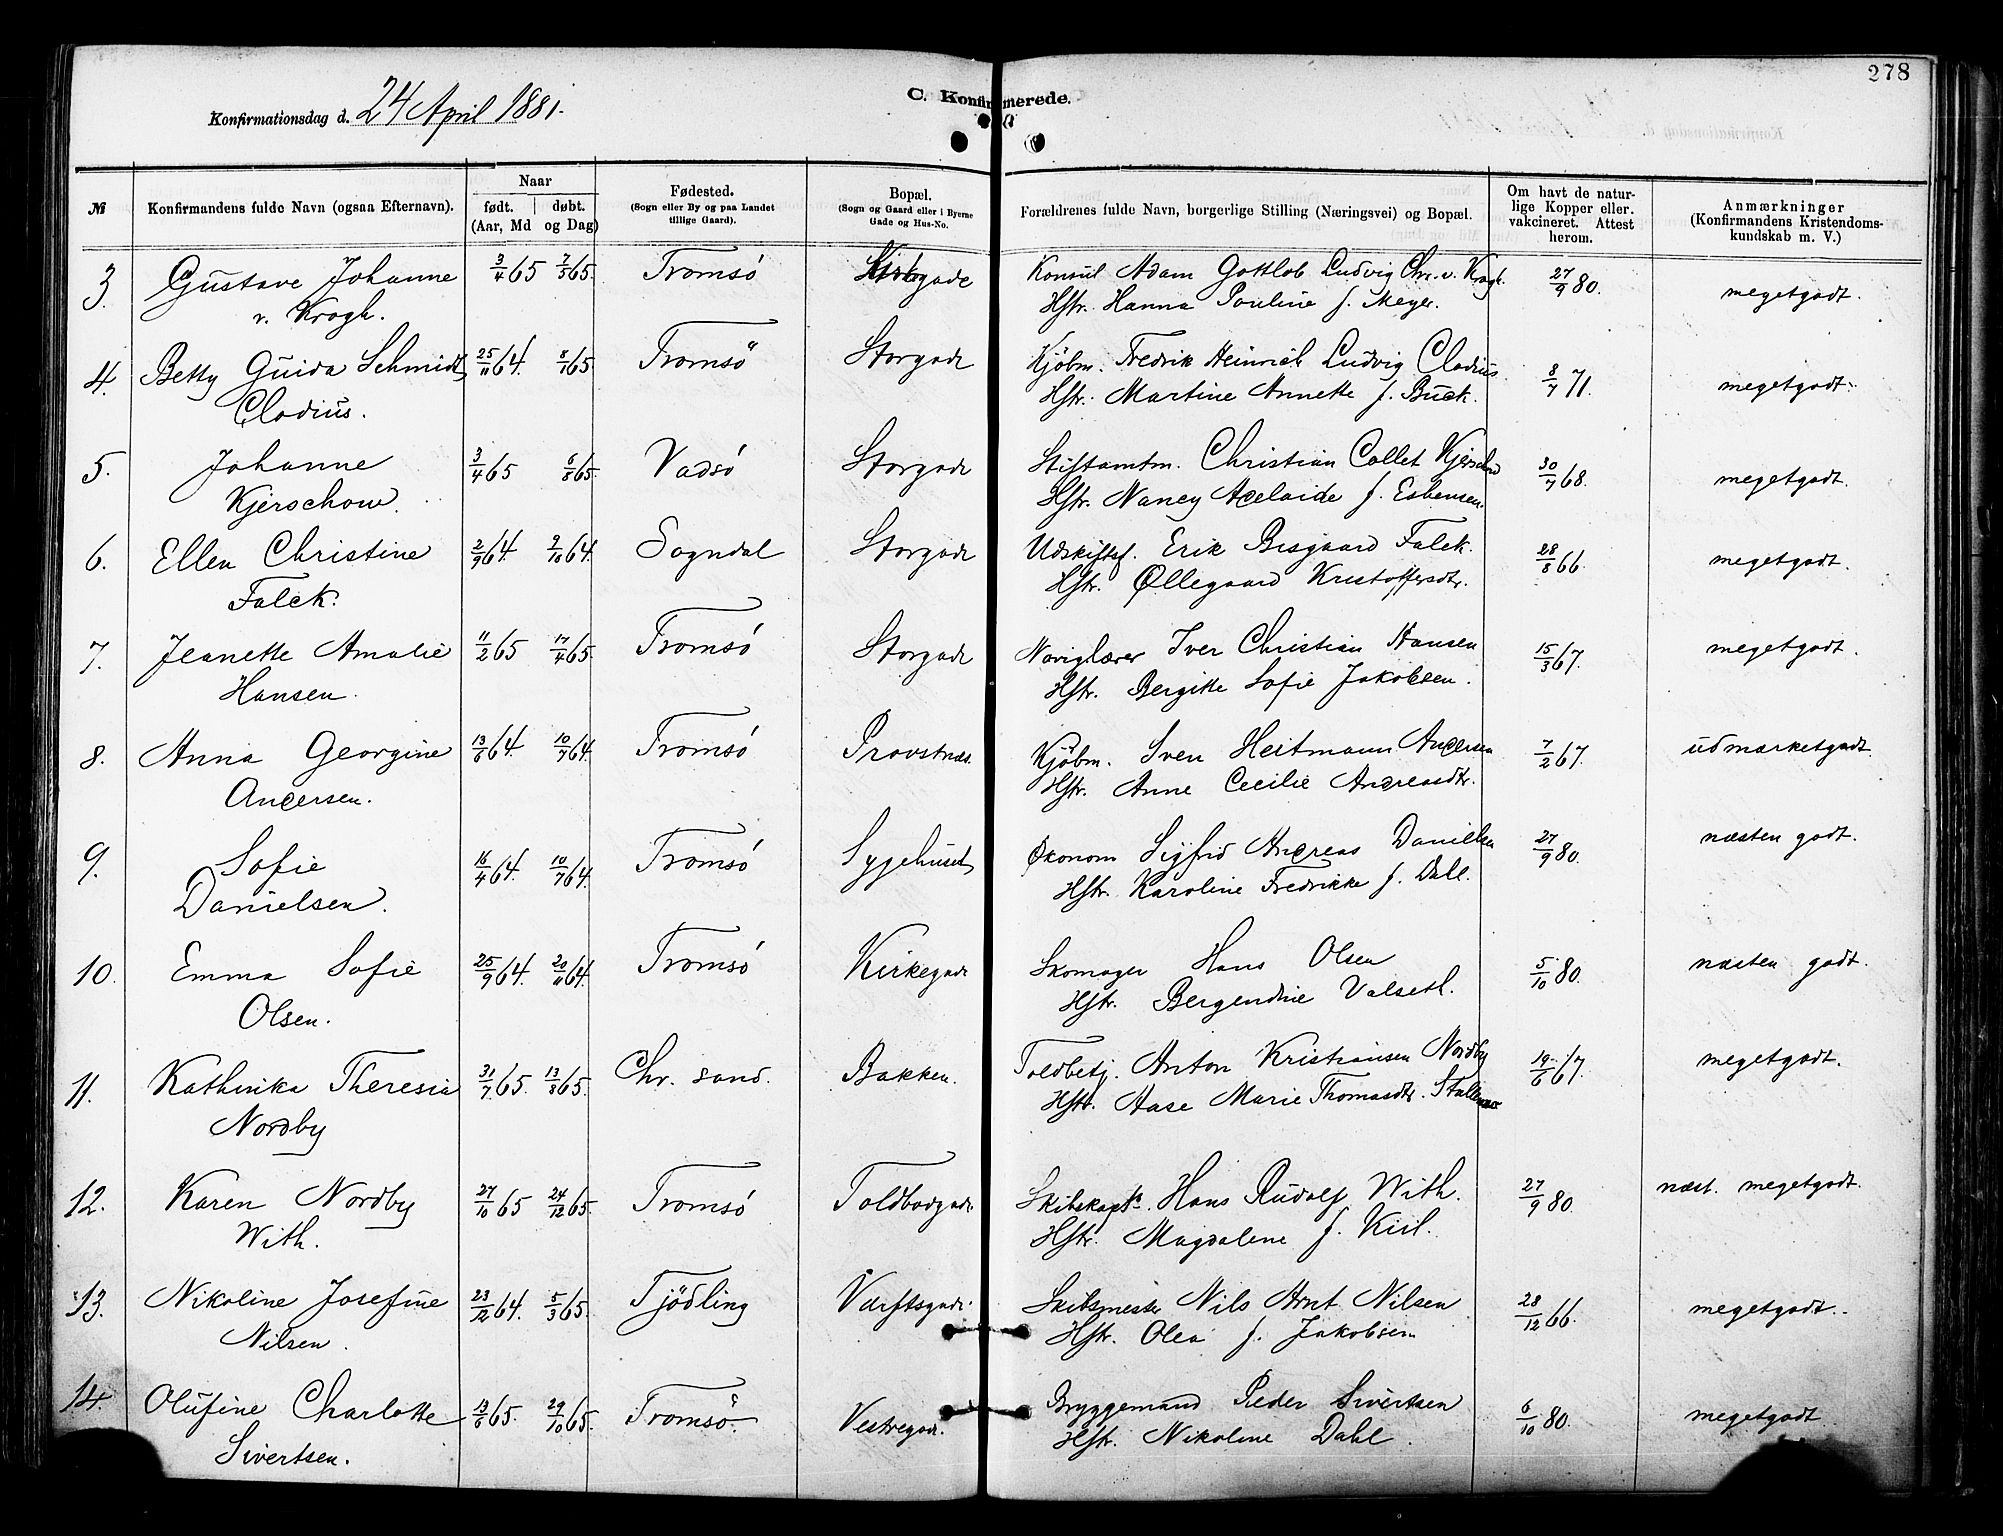 278
C. Konfirmerede.
Konfirmationsdag d. 24 April 1881.
№ | Konfirmandens fulde Navn (ogsaa Efternavn). | Naar født. (Aar, Md | døbt. og Dag) | Fødested. (Sogn eller By og paa Landet tillige Gaard). | Bopæl. (Sogn og Gaard eller i Byerne Gade og Hus-No. | Forældrenes fulde Navn, borgerlige Stilling (Næringsvei) og Bopæl. | Om havt de naturlige Kopper eller vakcineret. Attest herom. | Anmærkninger (Konfirmandens Kristendomskundskab m. V.)
3. Gustave Johanne 3/4 65 7/5 65. Tromsö gade Konsul Adam Gottlob Ludvig Chr. v. Krogh. 27/9 80. megetgodt.
v. Krogh. Hstr. Hanna Pauline f. Meyer.
4. Betty Guida Schmidt 25/11 64. 8/1 65. Tromsö Storgade Kjöbm. Fredrik Heinrich Ludvig Clodius. 8/7 71. megetgodt.
Clodius. Hstr. Martine Annette f. Buck.
5. Johanne 3/4 65 6/8 65. Vadsö Storgade Stiftamtm. Christian Collet Kjerschow 30/7 68. megetgodt.
Kjerschow. Hstr. Nancy Adelaide f. Esbensen.
6. Ellen Christine 2/9 64. 9/10 64. Sogndal Storgade Udskiftsf. Erik Bisgaard Falck. 28/8 66. megetgodt.
Falck. Hstr. Øllegaard Kristoffersdtr.
7. Jeanette Amalie 11/2 65 17/4 65. Tromsö Storgade Naviglærer Iver Christian Hansen 15/3 67. megetgodt.
Hansen. Hstr. Bergitte Sofie Jakobsen.
8. Anna Georgine 13/6 64. 10/7 64. Tromsö Provstnæs. Kjöbm. Sven Heitmann Andersen 7/2 67. udmærketgodt.
Andersen. Hstr. Anne Cecilie Andreasdtr.
9. Sofie 16/4 64. 10/7 64. Tromsö Sygehuset Økonom Sigfrid Andreas Danielsen 27/9 80. næsten godt.
Danielsen. Hstr. Karoline Fredrikke f. Dahl.
10. Emma Sofie 25/9 64. 20/11 64. Tromsö Kirkegade Skomager Hans Olsen 5/10 80. næsten godt.
Olsen. Hstr. Bergendine
11. Kathinka Theresia 31/7 65. 13/8 65. Chr. sand. Bakken. Toldbetj. Anton Kristiansen Nordby 19/6 67. megetgodt.
Nordby Hstr. Aase Marie Thomasdtr.
12. Karen Nordby 27/10 65 24/12 65. Tromsö Toldbodgade. Skibskapt. Hans Rudolf With. 27/9 80. næst. megetgodt.
With. Hstr. Magdalene f. Kiil.
13. Nikoline Josefine 23/12 64. 5/3 65. Tjödling Værftsgade. Skibsmester Nils Arnt Nilsen 28/12 66. megetgodt.
Nilsen. Hstr. Olea f. Jakobsen
14. Olufine Charlotte 13/6 65. 29/10 65. Tromsö. Vestregade. Bryggemand Peder Sivertsen 6/10 80. megetgodt
Sivertsen. Hstr. Nikoline Dahl.